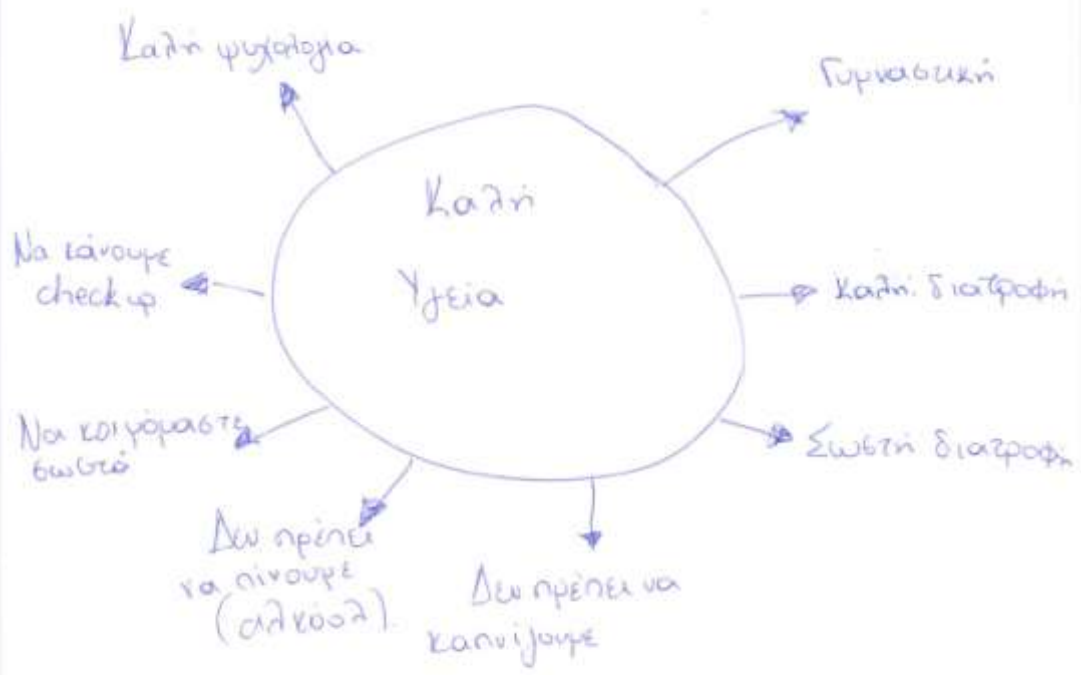 Καλή ψυχολογία
Γυμναστική
Καλή
Υγεία
Να κάνουμε
check up
Καλή διατροφή
Να κοιμόμαστε
σωστά
Σωστή διατροφή
Δεν πρέπει
να πίνουμε
(αλκοόλ).
Δεν πρέπει να
καπνίζουμε